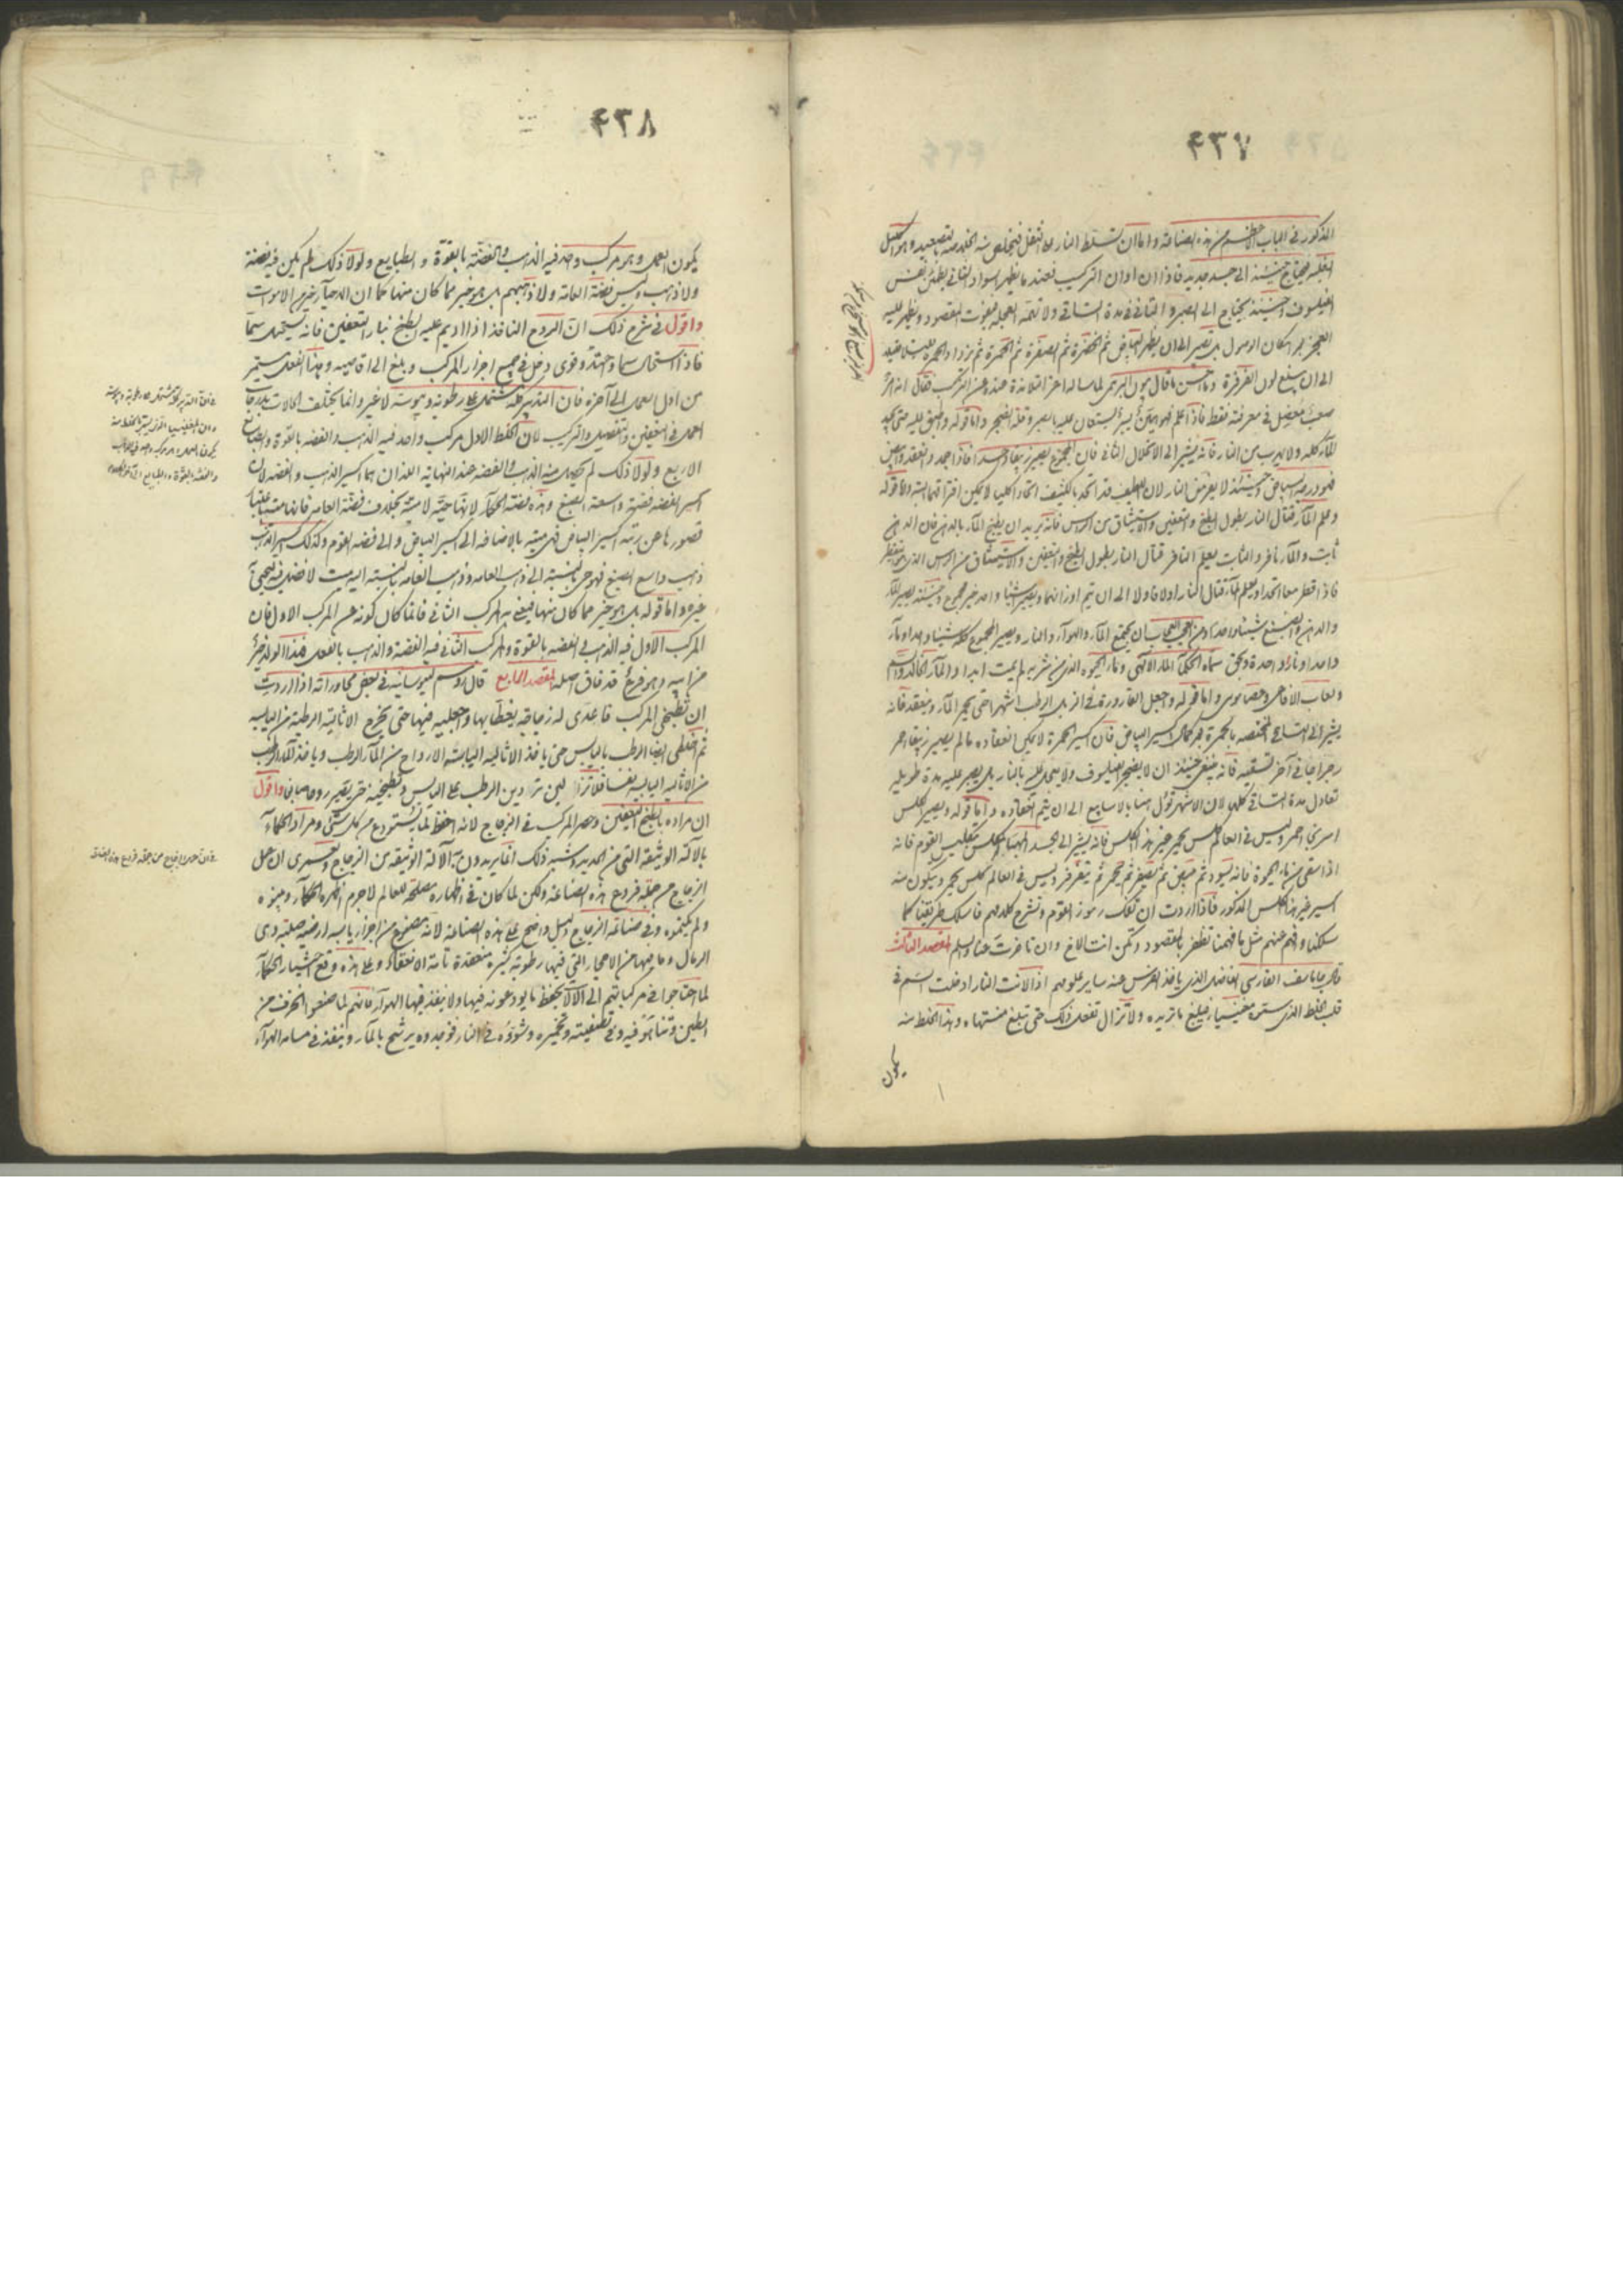 ٤٣٧
المذكور في الباب الاعظم من هذه الصناعة واما ان تسلط النار على الثفل فيتخلص منه الخلد منه بالتصعيد وهو اكليل
الغلبة فيحتاج حينئذ الى جسد جديد فاذا ان اوان التركيب فعند ما يظهر السواد الثاني يطمئن نفس
الفيلسوف وحينئذ يحتاج الى الصبر والتاني في مدة الساقي ولا تهمه العجلة فيفوت المقصود ويظهر عليه
العجز بعد امكان الوصول بل يصبر الى ان يظهر البياض ثم الخضرة ثم الصفرة ثم الحمرة ثم تزداد الحمرة
الى ان يبلغ لون الفرفرة وما احسن ما قال بولس لما ساله احد تلامذة عنده عن التركيب فقال انه امر
صعب معضل في معرفته فقط فاذا علم فهو هين يسير يستعان عليه بالصبر وقلة الضجر واما قوله واطبق عليه حتى يجمد
الماء كله ولا يهرب من النار فانه يشير الى الانحلال الثاني فان المجموع يصير زيبقا واحدا فاذا جمد وانعقد وابيض
فهو درجة البياض وحينئذ لا يفر من النار لان اللطيف قد اتحد بالكثيف اتحادا كليا لا يمكن افتراقهما البتة واما قوله
وعلم الماء قتال النار بطول الطبخ والتعفين والاستيثاق من الراس فانه يريد ان يطبخ الماء بالدهن فان الدهن
ثابت والماء نافر والثابت يعلم النافر قتال النار بطول الطبخ والتعفين والاستيثاق من الراس الذي هو القطر
فاذا قطرا معا اتحدا ويعلم الماء قتال النار اولا فاولا الى ان يتم اوزانهما ويصير شيئا واحدا غير مجموع وحينئذ يصير الماء
والدهن والصبغ شيئا واحدا ومن العجب العجاب ان يجتمع الماء والهواء والنار ويصير المجموع كله شيئا واحدا وماء
واحدا ونارا واحدة وبحق سماه الحكماء الماء الالهي ونار الحيوة الذي من شربه لم يمت ابدا والماء الخالد والسم
ولعاب الافاعي وعصا موسى واما قوله واجعل القارورة في الزبل الرطب اشهرا حتى يحمر الماء وينعقد فانه
يشير الى التساقي المختصة بالحمرة بعد كمال اكسير البياض فان اكسير الحمرة لا يمكن انعقاده ما لم يصير زيبقا احمر
رجراجا في آخر تسقية فانه ينبغي حينئذ ان لا يضجر الفيلسوف ولا يعجل عليه بالنار بل يصبر عليه مدة طويلة
تعادل مدة التساقي كلها لان الاشهر تؤل هنا بالاسابيع الى ان يتم انعقاده واما قوله ويصير الكلس
اسرنجا احمر وليس في العالم كلس يحمر غير هذا الكلس فانه يشير الى الجسد المهبا كلس بتكليس القوم فانه
اذا سقي من ماء الحيوة فانه يسود ثم يبيض ثم يصفر ثم يحمر ثم يتفرفر وليس في العالم كلس يحمر ويتكون منه
اكسير غير هذا الكلس المذكور فاذا اردت ان تفك رموز القوم وتشرح كلامهم فاسلك طريقتنا كما
سلكنا وافهم عنهم مثل ما فهمنا تظفر بالمقصود وتكن انت الاخ وان تاخرت عنا والسلم المقصد الثالث
قال جاماسف الفارسي الفاضل الذي ياخذ الفرس عنه ساير علومهم اذا لانت النار ادخلت السم في
قلب الخلط الذي ستره مغنيسيا فيبلغ ما تريده ولا تزال تفعل ذلك حتى تبلغ منتهاه وهذا الخلط منه
يكون
٤٣٨
يكون العمل وهو مركب واحد فيه الذهب والفضة بالقوة والطبايع ولولا ذلك لم يكن فيه فضة
ولا ذهب وليس بفضة العامة ولا ذهبهم بل هو خير مما كان منها كما ان الاحياء خير من الاموات
واقول في شرح ذلك ان الروح النافذ اذا اديم عليه الطبخ بنار التعفين فانه يستحيل سما
فاذا استحال سما واحتد وقوي دخل في جميع اجزاء المركب وبلغ الى اقاصيه وهذا الفعل يستمر
من اول العمل الى آخره فان التدبير كله يشتمل على رطوبة ويبوسة لا غير وانما يختلف الحالات بدرجات
العمل في التعفين والتفصيل والتركيب لان الخلط الاول مركب واحد فيه الذهب والفضه بالقوة والصبائغ
الاربع ولولا ذلك لم يحصل منه الذهب والفضه عند النهاية اللذان هما اكسير الذهب والفضه لان
اكسير الفضه فضة واسعة الصبغ وهذه فضة الحكماء لانها حية لا ميتة بخلاف فضة العامه فانها ميتة
قصورها عن رتبة اكسير البياض فهي ميتة بالاضافة الى اكسير البياض والى فضة القوم وكذلك اكسير الذهب
ذهب واسع الصبغ فهو حي بالنسبة الى ذهب العامه وذهب العامه بالنسبة اليه ميت لا فضل فيه ليحيي
غيره واما قوله بل هو خير مما كان منها فيعني به المركب الثاني فانما كان كونه من المركب الاول فان
المركب الاول فيه الذهب والفضه بالقوة والمركب الثاني فيه الفضة والذهب بالفعل فهذا الولد خير
من ابيه وهو فرع قد فاق اصله المقصد الرابع قال ارسم لثيوسابيه في بعض محاوراته اذا اردت
ان تطبخي المركب فاعمدي له زجاجة يغطى بها واجعليه فيها حتى يخرج الاثالية الرطبة من اليابسة
ثم اخلطي ايضا الرطب باليابس حتى ياخذ الاثالية اليابسة الارواح من الماء الرطب وياخذ الماء الرطب
من الاثالية اليابسة نفسا فلا تزالين تزاوجين الرطب على اليابس وتطبخيه حتى يصير روحانيا واقول
ان مراده بالطبخ التعفين وحصر المركب في الزجاج لانه احفظ لما يستودع من كل شيء ومراد الحكماء
بالآلة الوثيقة التي من الحديد وشبه ذلك انما يريدون به الآلة الوثيقة من الزجاج ولعمري ان عمل
الزجاج من جملة فروع هذه الصناعة ولكن لما كان في اظهاره مصلحة للعالم لا جرم اظهره الحكماء وميزوه
ولم يكتموه وفي صناعة الزجاج دليل واضح على هذه الصناعة لانه مصنوع من اجزاء يابسة ارضية صلبة وهي
الرمال وما فيها من الاحجار التي فيها رطوبة كثيرة منعقدة تامة الانعقاد وعلى هذه وقع اختيار الحكماء
لما احتاجوا في مركباتهم الى الآلات لحفظ ما يودعونه فيها ولا ينفذ فيها الهواء فانهم لما صنعوا الخزف من
الطين وتناهوا فيه وفي تصفيته وتخميره وشووه في النار فوجدوه يرشح بالماء وينفذ في مسامه الهواء
في ان التدبير كله يشتمل على رطوبة ويبوسة
وان المغنيسيا الذي يستر الخلط منه
يكون العمل وهو مركب واحد فيه الذهب
والفضة بالقوة والطبايع
في ان عمل الزجاج من جملة فروع هذه الصناعة